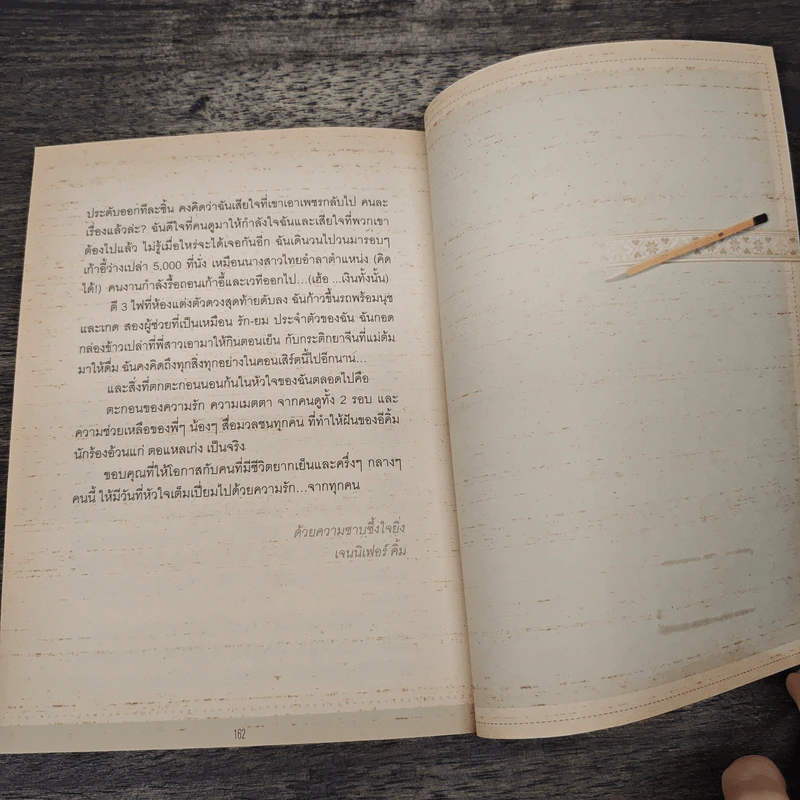 ประดับออกทีละชิ้น คงคิดว่าฉันเสียใจที่เขาเอาเพชรกลับไป คนละ
เรื่องแล้วล่ะ? ฉันดีใจที่คนดูมาให้กำลังใจฉันและเสียใจที่พวกเขา
ต้องไปแล้ว ไม่รู้เมื่อไหร่จะได้เจอกันอีก ฉันเดินวนไปวนมารอบๆ
เก้าอี้ว่างเปล่า 5,000 ที่นั่ง เหมือนนางสาวไทยอำลาตำแหน่ง (คิด
ได้!) คนงานกำลังรื้อถอนเก้าอี้และเวทีออกไป...(เฮ้อ ...เงินทั้งนั้น)
ตี 3 ไฟที่ห้องแต่งตัวดวงสุดท้ายดับลง ฉันก้าวขึ้นรถพร้อมนุช
และเกด สองผู้ช่วยที่เป็นเหมือน รัก-ยม ประจำตัวของฉัน ฉันกอด
กล่องข้าวเปล่าที่พี่สาวเอามาให้กินตอนเย็น กับกระติกยาจีนที่แม่ต้ม
มาให้ดื่ม ฉันคงคิดถึงทุกสิ่งทุกอย่างในคอนเสิร์ตนี้ไปอีกนาน...
และสิ่งที่ตกตะกอนนอนก้นในหัวใจของฉันตลอดไปคือ
ตะกอนของความรัก ความเมตตา จากคนดูทั้ง 2 รอบ และ
ความช่วยเหลือของพี่ๆ น้องๆ สื่อมวลชนทุกคน ที่ทำให้ฝันของอีคิ้ม
นักร้องอ้วนแก่ ตอแหลเก่ง เป็นจริง
ขอบคุณที่ให้โอกาสกับคนที่มีชีวิตยากเย็นและครึ่งๆ กลางๆ
คนนี้ ให้มีวันที่หัวใจเต็มเปี่ยมไปด้วยความรัก...จากทุกคน
ด้วยความซาบซึ้งใจยิ่ง
เจนนิเฟอร์ คิ้ม
162